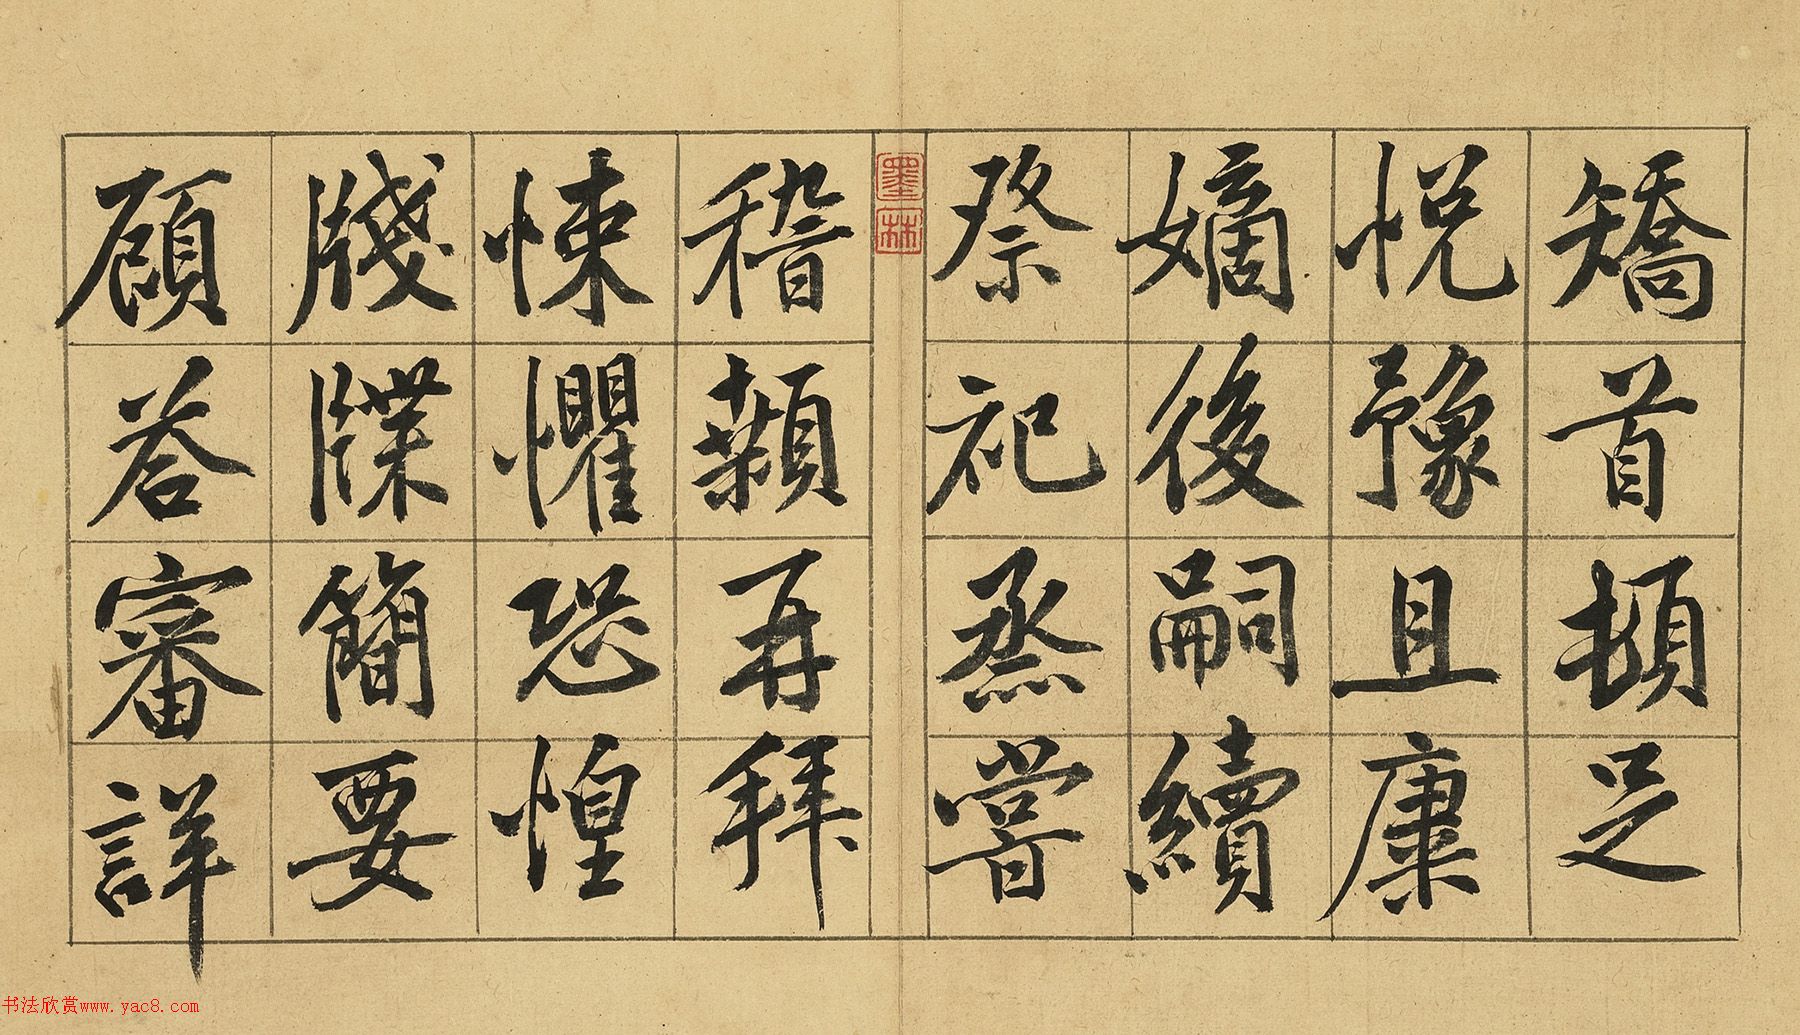 矯首頓足
悅豫且康
嫡後嗣續
祭祀烝嘗
稽顙再拜
悚懼恐惶
牋牒簡要
顧荅審詳
墨林
书法欣赏www.yac8.com